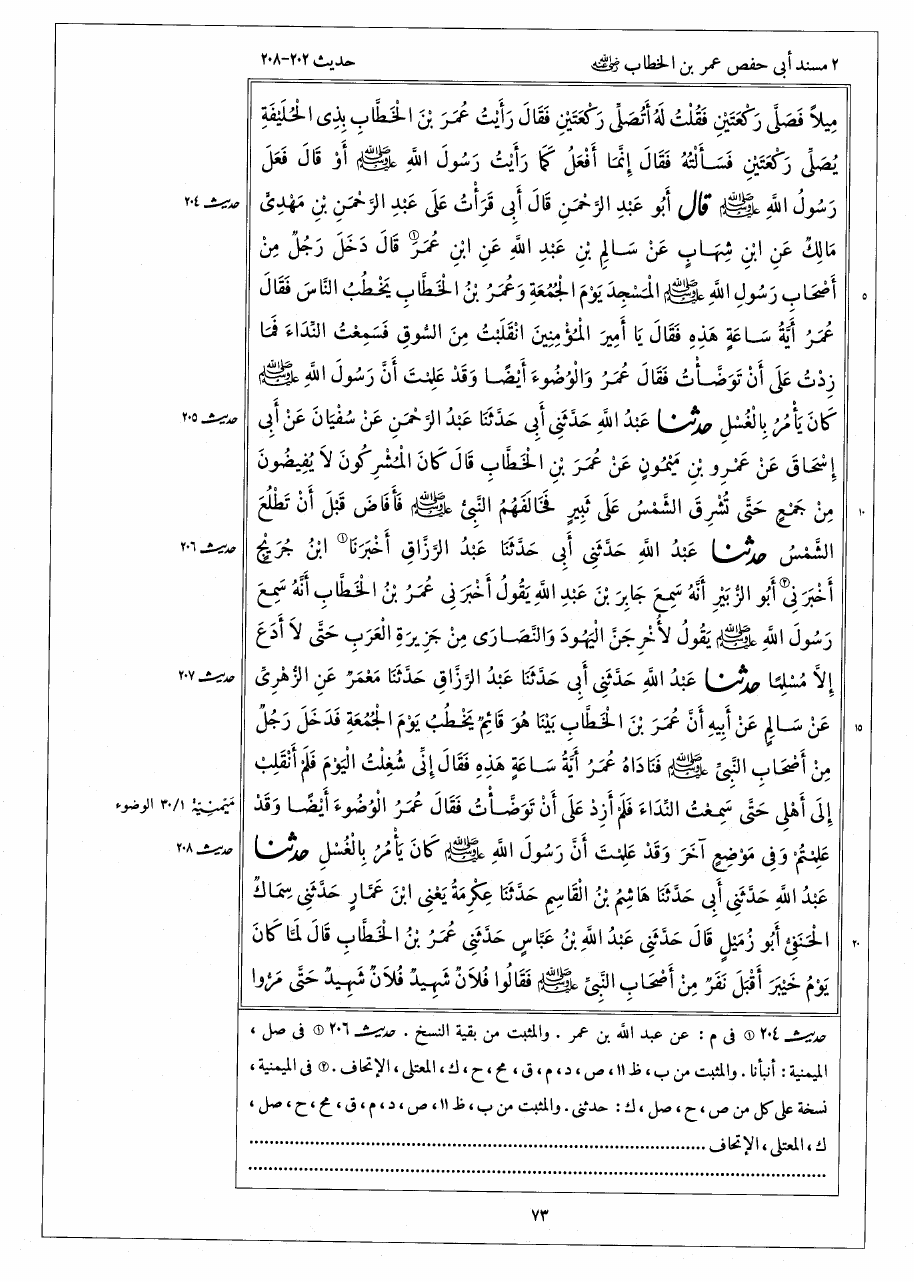 ٢ مسند أبى حفص عمر بن الخطاب رضي الله عنه
حديث ٢٠٢-٢٠٨
مِيلاً فَصَلَّى رَكْعَتَيْنِ فَقُلْتُ لَهُ أَتُصَلِّى رَكْعَتَيْنِ فَقَالَ رَأَيْتُ عُمَرَ بْنَ الْخَطَّابِ بِذِى الْحُلَيْفَةِ
يُصَلِّى رَكْعَتَيْنِ فَسَأَلْتُهُ فَقَالَ إِنَّمَا أَفْعَلُ كَمَا رَأَيْتُ رَسُولَ اللَّهِ ﷺ أَوْ قَالَ فَعَلَ
رَسُولُ اللَّهِ ﷺ قال أَبُو عَبْدِ الرَّحْمَنِ قَالَ أَبِى قَرَأْتُ عَلَى عَبْدِ الرَّحْمَنِ بْنِ مَهْدِىٍّ
حديث ٢٠٤
مَالِكٌ عَنِ ابْنِ شِهَابٍ عَنْ سَالِمِ بْنِ عَبْدِ اللَّهِ عَنِ ابْنِ عُمَرَ① قَالَ دَخَلَ رَجُلٌ مِنْ
أَصْحَابِ رَسُولِ اللَّهِ ﷺ الْمَسْجِدَ يَوْمَ الْجُمُعَةِ وَعُمَرُ بْنُ الْخَطَّابِ يَخْطُبُ النَّاسَ فَقَالَ
٥
عُمَرُ أَيَّةُ سَاعَةٍ هَذِهِ فَقَالَ يَا أَمِيرَ الْمُؤْمِنِينَ انْقَلَبْتُ مِنَ السُّوقِ فَسَمِعْتُ النِّدَاءَ فَمَا
زِدْتُ عَلَى أَنْ تَوَضَّأْتُ فَقَالَ عُمَرُ وَالْوُضُوءَ أَيْضًا وَقَدْ عَلِمْتَ أَنَّ رَسُولَ اللَّهِ ﷺ
كَانَ يَأْمُرُ بِالْغُسْلِ حدثنا عَبْدُ اللَّهِ حَدَّثَنِى أَبِى حَدَّثَنَا عَبْدُ الرَّحْمَنِ عَنْ سُفْيَانَ عَنْ أَبِى
حديث ٢٠٥
إِسْحَاقَ عَنْ عَمْرِو بْنِ مَيْمُونٍ عَنْ عُمَرَ بْنِ الْخَطَّابِ قَالَ كَانَ الْمُشْرِكُونَ لاَ يُفِيضُونَ
مِنْ جَمْعٍ حَتَّى تُشْرِقَ الشَّمْسُ عَلَى ثَبِيرٍ فَخَالَفَهُمُ النَّبِىُّ ﷺ فَأَفَاضَ قَبْلَ أَنْ تَطْلُعَ
١٠
الشَّمْسُ حدثنا عَبْدُ اللَّهِ حَدَّثَنِى أَبِى حَدَّثَنَا عَبْدُ الرَّزَّاقِ أَخْبَرَنَا① ابْنُ جُرَيْجٍ
حديث ٢٠٦
أَخْبَرَنِى② أَبُو الزُّبَيْرِ أَنَّهُ سَمِعَ جَابِرَ بْنَ عَبْدِ اللَّهِ يَقُولُ أَخْبَرَنِى عُمَرُ بْنُ الْخَطَّابِ أَنَّهُ سَمِعَ
رَسُولَ اللَّهِ ﷺ يَقُولُ لأُخْرِجَنَّ الْيَهُودَ وَالنَّصَارَى مِنْ جَزِيرَةِ الْعَرَبِ حَتَّى لاَ أَدَعَ
إِلاَّ مُسْلِمًا حدثنا عَبْدُ اللَّهِ حَدَّثَنِى أَبِى حَدَّثَنَا عَبْدُ الرَّزَّاقِ حَدَّثَنَا مَعْمَرٌ عَنِ الزُّهْرِىِّ
حديث ٢٠٧
عَنْ سَالِمٍ عَنْ أَبِيهِ أَنَّ عُمَرَ بْنَ الْخَطَّابِ بَيْنَا هُوَ قَائِمٌ يَخْطُبُ يَوْمَ الْجُمُعَةِ فَدَخَلَ رَجُلٌ
١٥
مِنْ أَصْحَابِ النَّبِىِّ ﷺ فَنَادَاهُ عُمَرُ أَيَّةُ سَاعَةٍ هَذِهِ فَقَالَ إِنِّى شُغِلْتُ الْيَوْمَ فَلَمْ أَنْقَلِبْ
إِلَى أَهْلِى حَتَّى سَمِعْتُ النِّدَاءَ فَلَمْ أَزِدْ عَلَى أَنْ تَوَضَّأْتُ فَقَالَ عُمَرُ الْوُضُوءَ أَيْضًا وَقَدْ
ميمنية ٣٠/١ الوضوء
عَلِمْتُمْ وَفِى مَوْضِعٍ آخَرَ وَقَدْ عَلِمْتَ أَنَّ رَسُولَ اللَّهِ ﷺ كَانَ يَأْمُرُ بِالْغُسْلِ حدثنا
حديث ٢٠٨
عَبْدُ اللَّهِ حَدَّثَنِى أَبِى حَدَّثَنَا هَاشِمُ بْنُ الْقَاسِمِ حَدَّثَنَا عِكْرِمَةُ يَعْنِى ابْنَ عَمَّارٍ حَدَّثَنِى سِمَاكٌ
الْحَنَفِىُّ أَبُو زُمَيْلٍ قَالَ حَدَّثَنِى عَبْدُ اللَّهِ بْنُ عَبَّاسٍ حَدَّثَنِى عُمَرُ بْنُ الْخَطَّابِ قَالَ لَمَّا كَانَ
٢٠
يَوْمُ خَيْبَرَ أَقْبَلَ نَفَرٌ مِنْ أَصْحَابِ النَّبِىِّ ﷺ فَقَالُوا فُلاَنٌ شَهِيدٌ فُلاَنٌ شَهِيدٌ حَتَّى مَرُّوا
حديث ٢٠٤ ① فى م : عن عبد الله بن عمر . والمثبت من بقية النسخ . حديث ٢٠٦ ① فى صل ،
الميمنية : أنبأنا . والمثبت من ب ، ظ ١١ ، ص ، د ، م ، ق ، مح ، ح ، ك ، المعتلى ، الإتحاف . ② فى الميمنية ،
نسخة على كل من ص ، ح ، صل ، ك : حدثنى . والمثبت من ب ، ظ ١١ ، ص ، د ، م ، ق ، مح ، ح ، صل ،
ك ، المعتلى ، الإتحاف
٧٣